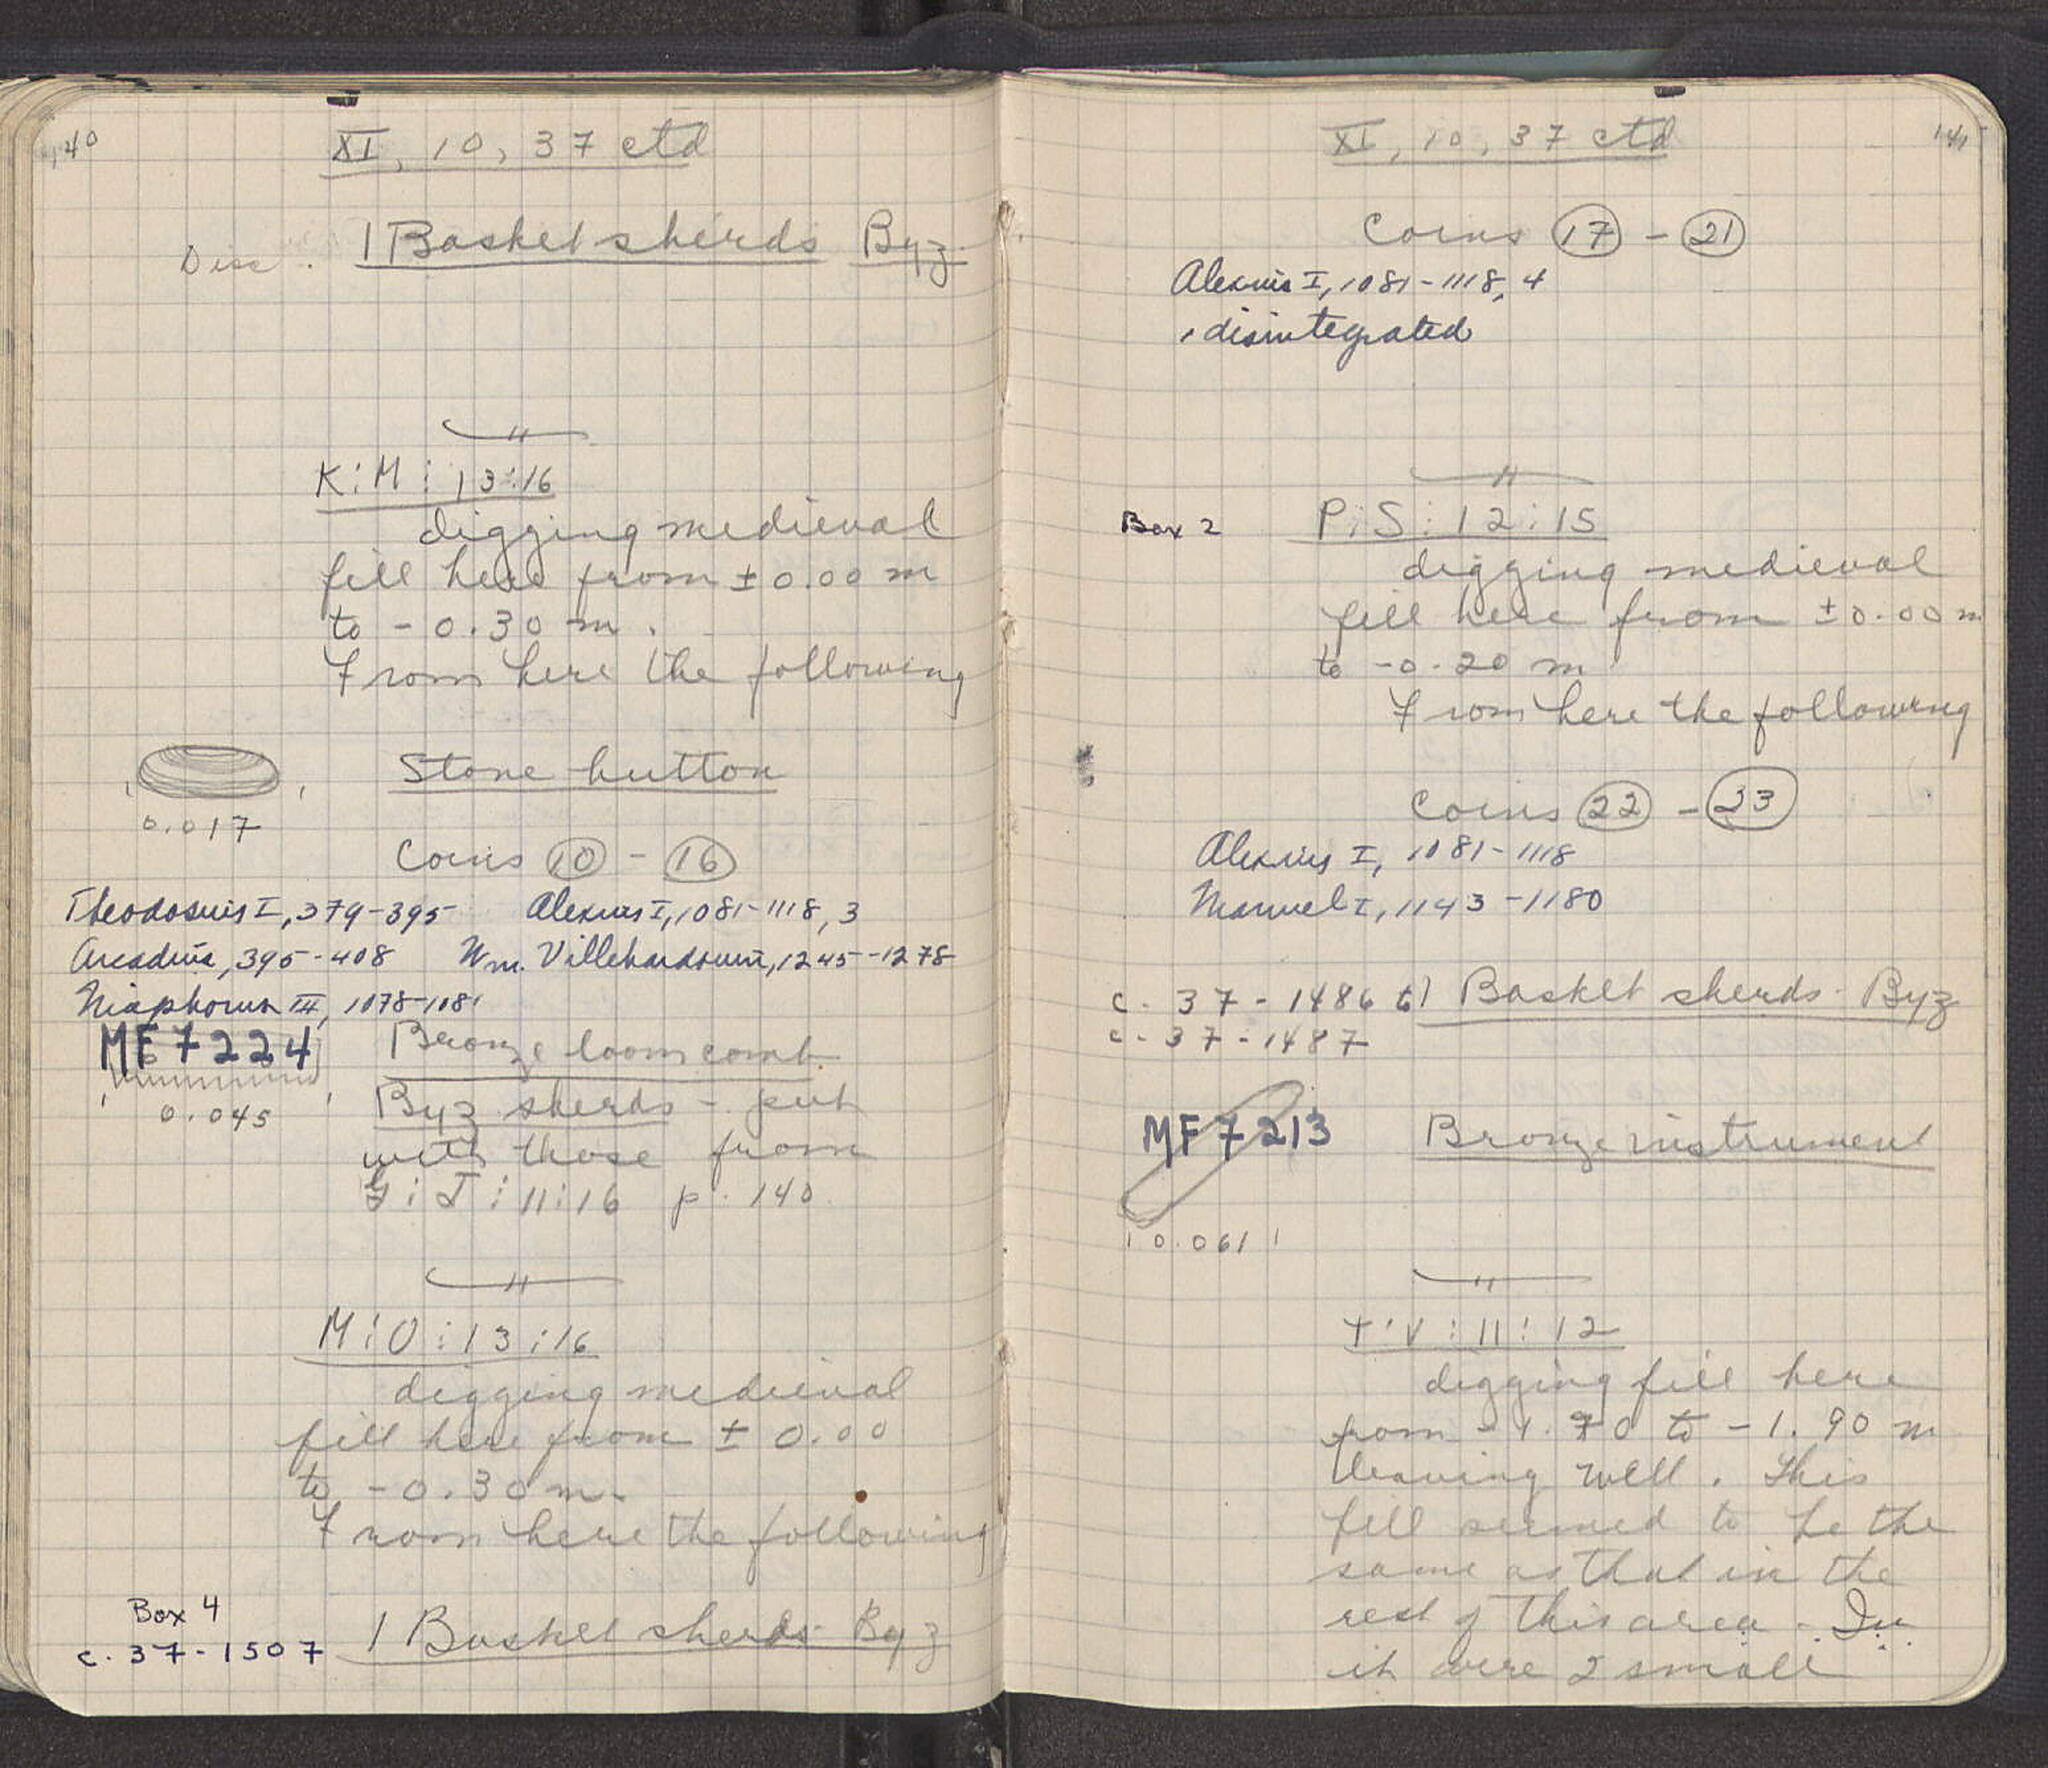 140
XI, 10, 37 ctd
Disc. 1 Basket sherds Byz
K:M:13:16
digging medieval
fill here from ±0.00 m
to -0.30 m.
From here the following
Stone button
0.017
Coins 10 - 16
Theodosius I, 379-395 Alexius I, 1081-1118, 3
Arcadius, 395-408 Wm. Villehardouin, 1245-1278
Nicephorus III, 1078-1081
MF 7224 Bronze loom comb
0.045 Byz sherds - put
with those from
: J : 11:16 p. 140
M:O:13:16
digging medieval
fill here from ± 0.00
to -0.30 m.
From here the following
Box 4
c. 37-1507 1 Basket sherds Byz
141
XI, 10, 37 ctd
Coins 17 - 21
Alexius I, 1081-1118, 4
1 disintegrated
Box 2 P:S:12:15
digging medieval
fill here from ±0.00 m
to -0.20 m
From here the following
Coins 22 - 23
Alexius I, 1081-1118
Manuel I, 1143-1180
c. 37-1486 to 1 Basket sherds Byz
c. 37-1487
MF 7213 Bronze instrument
0.061
T:V:11:12
digging fill here
from -1.70 to -1.90 m
leaving well. This
fill seemed to be the
same as that in the
rest of this area. In
it were 2 small